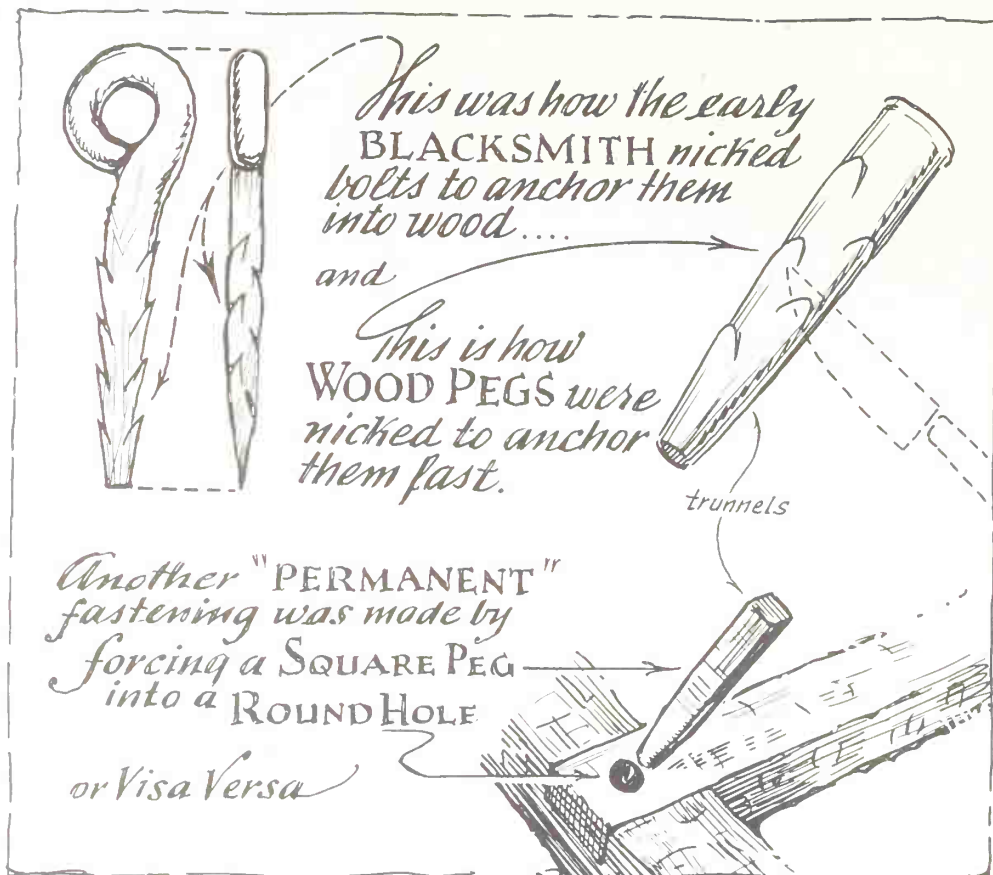 This was how the early
BLACKSMITH nicked
bolts to anchor them
into wood....
and
This is how
WOOD PEGS were
nicked to anchor
them fast.
trunnels
Another "PERMANENT"
fastening was made by
forcing a SQUARE PEG
into a ROUND HOLE
or Visa Versa